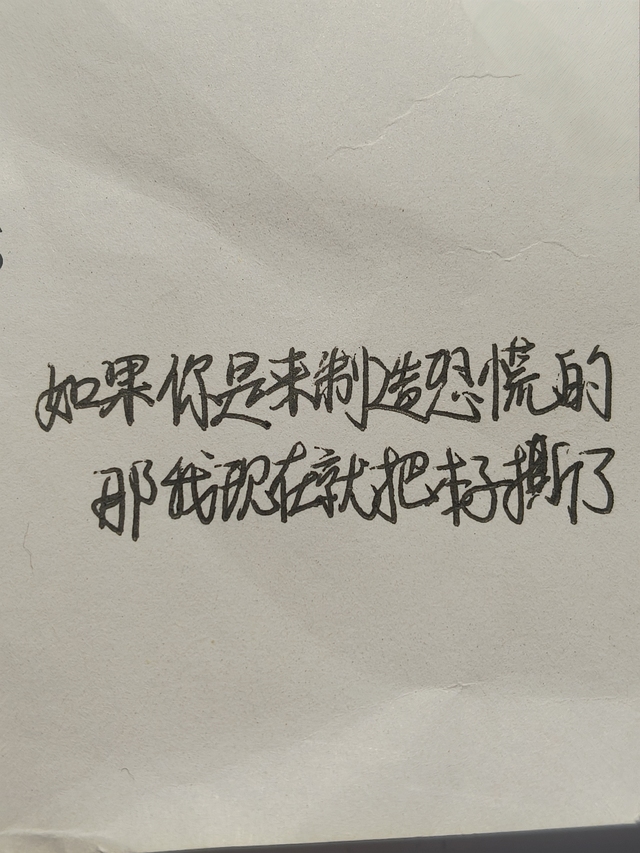 如果你是来制造恐慌的
那我现在就把本子撕了